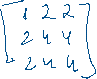 1 2 2
2 4 4
2 4 4